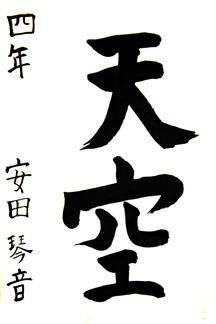 天空
四年 安田琴音